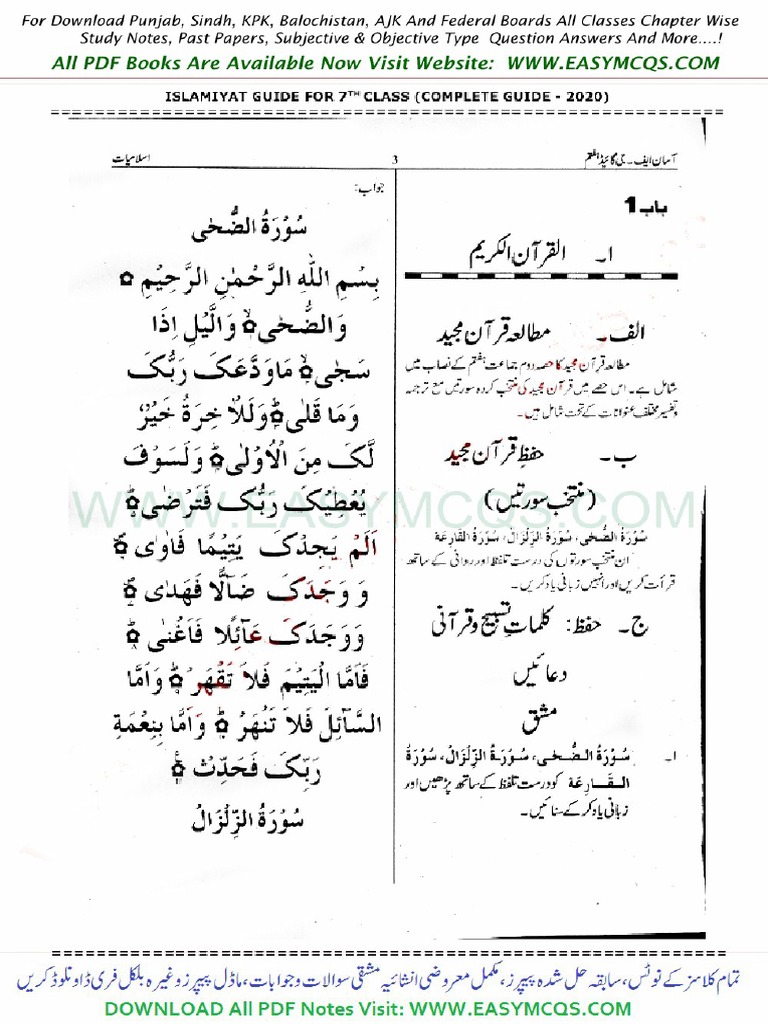 For Download Punjab, Sindh, KPK, Balochistan, AJK And Federal Boards All Classes Chapter Wise
Study Notes, Past Papers, Subjective & Objective Type Question Answers And More....!
All PDF Books Are Available Now Visit Website: WWW.EASYMCQS.COM
ISLAMIYAT GUIDE FOR 7TH CLASS (COMPLETE GUIDE - 2020)
آسان ایف۔ جی گائیڈ ہفتم 3 اسلامیات
باب 1
ا۔ القرآن الکریم
الف۔ مطالعہ قرآن مجید
مطالعہ قرآن مجید کا حصہ دوم جماعت ہفتم کے نصاب میں
شامل ہے۔ اس حصے میں قرآن مجید کی منتخب کردہ سورتیں مع ترجمہ
وتفسیر مختلف عنوانات کے تحت شامل ہیں۔
ب۔ حفظِ قرآن مجید
(منتخب سورتیں)
سُوْرَۃُ الضُّحٰی، سُوْرَۃُ الزِّلْزَالُ، سُوْرَۃُ الْقَارِعَۃ
ان منتخب سورتوں کی درست تلفظ اور روانی کے ساتھ
قرأت کریں اور انہیں زبانی یاد کریں۔
ج۔ حفظ: کلماتِ تسبیح و قرآنی
دعائیں
مشق
ا۔ سُوْرَۃُ الضُّحٰی، سُوْرَۃُ الزِّلْزَالُ، سُوْرَۃُ
الْقَارِعَۃ کو درست تلفظ کے ساتھ پڑھیں اور
زبانی یاد کر کے سنائیں۔
جواب:
سُوْرَۃُ الضُّحٰی
بِسْمِ اللّٰهِ الرَّحْمٰنِ الرَّحِیْمِ ۝
وَالضُّحٰی ۝ وَالَّیْلِ اِذَا
سَجٰی ۝ مَاوَدَّعَکَ رَبُّکَ
وَمَا قَلٰی ۝ وَلَلْاٰخِرَۃُ خَیْرٌ
لَّکَ مِنَ الْاُوْلٰی ۝ وَلَسَوْفَ
یُعْطِیْکَ رَبُّکَ فَتَرْضٰی ۝
اَلَمْ یَجِدْکَ یَتِیْمًا فَاٰوٰی ۝
وَوَجَدَکَ ضَآلًّا فَهَدٰی ۝
وَوَجَدَکَ عَآئِلًا فَاَغْنٰی ۝
فَاَمَّا الْیَتِیْمَ فَلاَ تَقْهَرْ ۝ وَاَمَّا
السَّآئِلَ فَلاَ تَنْهَرْ ۝ وَاَمَّا بِنِعْمَةِ
رَبِّکَ فَحَدِّثْ ۝
سُوْرَۃُ الزِّلْزَالُ
WWW.EASYMCQS.COM
تمام کلاسز کے نوٹس، سابقہ حل شدہ پیپرز، مکمل معروضی انشائیہ مشقی سوالات و جوابات، ماڈل پیپرز وغیرہ بلکل فری ڈاونلوڈ کریں
DOWNLOAD All PDF Notes Visit: WWW.EASYMCQS.COM